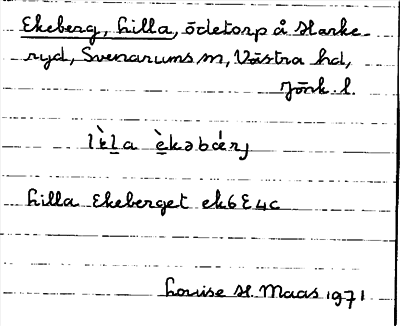 Ekeberg, Lilla, ödetorp å Harke-
ryd, Svenarums sn, Västra hd,
Jönk. l.
lìla èkəbǽrj
Lilla Ekeberget ek6E4c
Louise H. Maas 1971